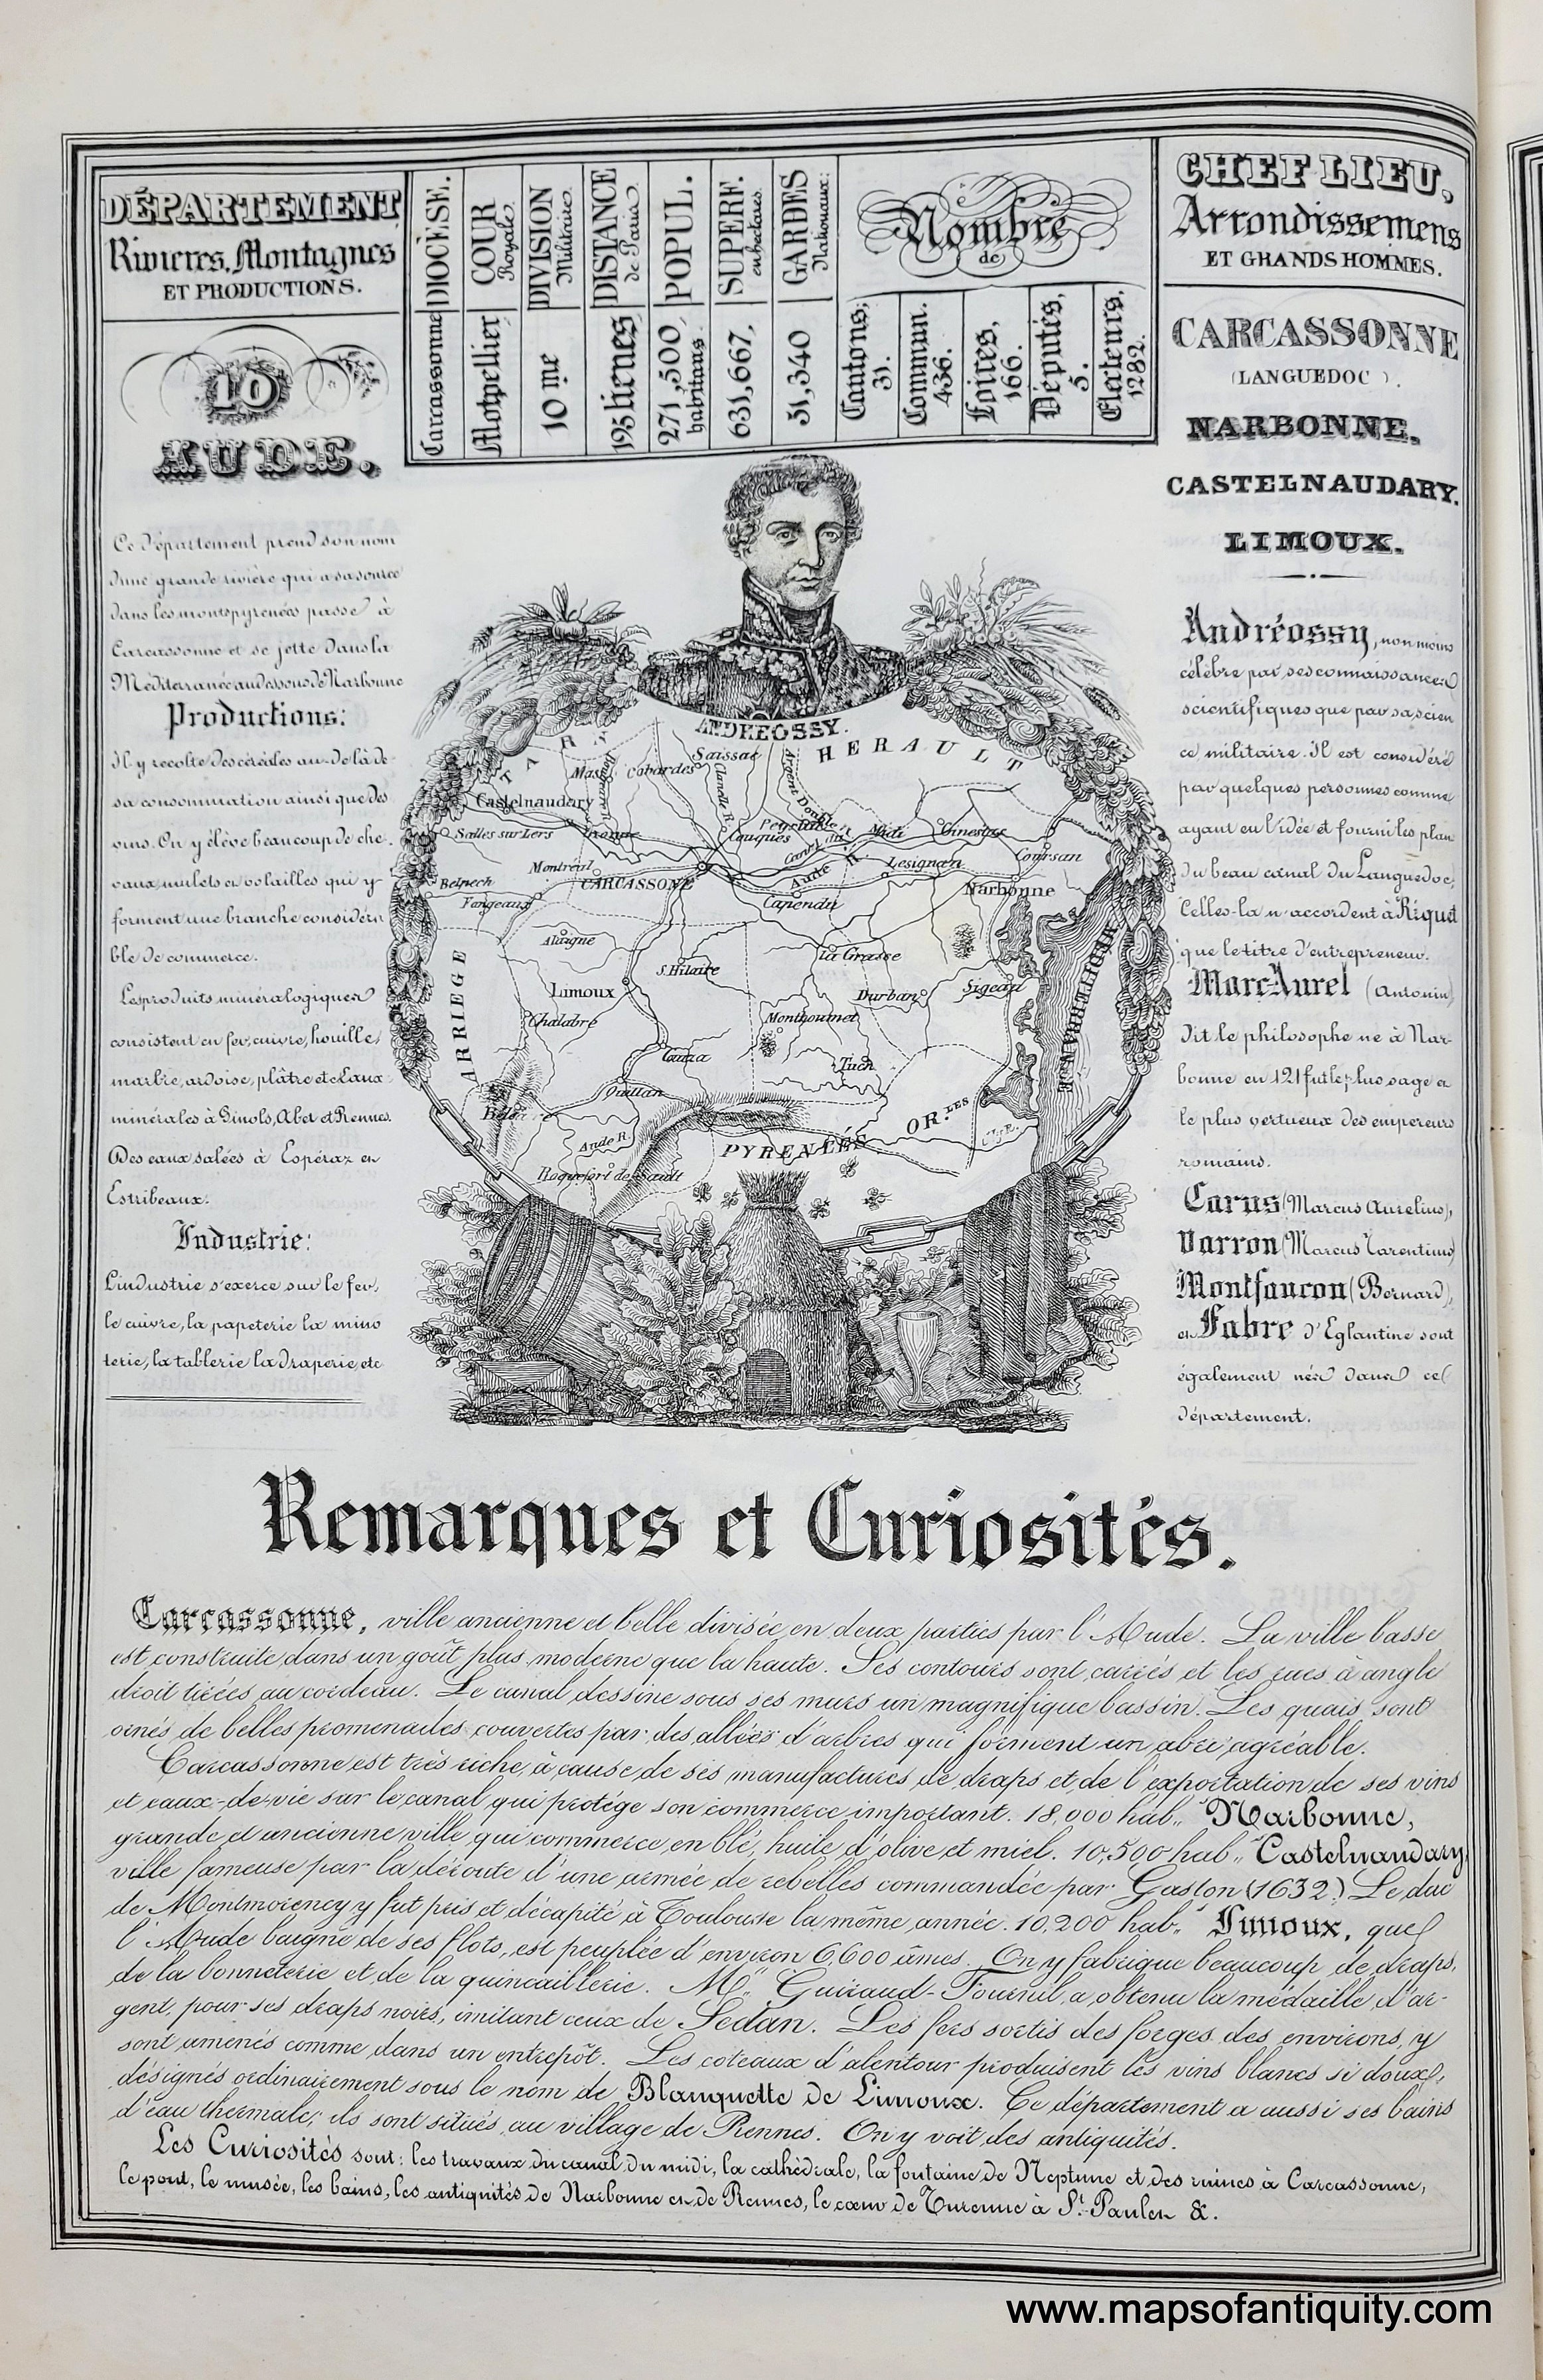 DÉPARTEMENT
Rivieres, Montagnes
ET PRODUCTIONS.
10
AUDE.
DIOCÈSE.
Carcassonne
COUR
Royale
Motpellier
DIVISION
Militaire
10 me
DISTANCE
de Paris
193 lienes
POPUL.
271,500
habitans.
SUPERF.
en hectares.
631,667.
GARDES
Nationaux:
51,340
Nombre
de
Cantons,
31.
Commun.
436.
Foires,
166.
Députés,
5.
Electeurs.
1282.
CHEF LIEU,
Arrondissemens
ET GRANDS HOMMES.
CARCASSONNE
(LANGUEDOC ).
NARBONNE.
CASTELNAUDARY.
LIMOUX.
Ce Département prend son nom
d'une grande rivière qui a sa source
dans les monts pyrenées passe à
Carcassonne et se jette dans la
Méditerranée au dessous de Narbonne
Productions:
Il y recolte des céréales au-delà de
sa consommation ainsi que des
vins. On y élève beaucoup de che-
vaux, mulets et volailles qui y
forment une branche considéra
ble de commerce.
Les produits minéralogiques
consistent en fer, cuivre, houille,
marbre, ardoise, plâtre et d'eaux
minérales à Ginols, Alet et Rennes.
Des eaux salées à Espéraz en
Estribeaux.
Industrie:
L'industrie s'exerce sur le fer,
le cuivre, la papeterie la mino
terie, la tablerie la draperie etc
ANDRÉOSSY.
TARN
HERAULT
Mas
Cabardes
Saissac
Clamelle R.
Argent Double
Castelnaudary
Salles sur Lers
Conques
Peyriac
Midi
Ginestas
Coursan
Belpech
Montréal
CARCASSONE
Aude R.
Lesignan
Narbonne
Fangeaux
Capendu
Alaigne
S. Hilaire
La Grasse
ARRIEGE
Limoux
Durban
Sigean
MEDITERRANÉE
Chalabre
Monthoumet
Couiza
Tuch
Belc
Quillan
OR.LES
Aude R.
PYRENÉES
Roquefort de Sault
Andréossy, non moins
célèbre par ses connaissances
scientifiques que par sa scien
ce militaire. Il est considéré
par quelques personnes comme
ayant eu l'idée et fourni les plan
du beau canal du Languedoc,
Celles-la n'accordent à Riquet
que le titre d'entrepreneur.
Marc Aurel (Antonin)
dit le philosophe ne à Nar-
bonne en 121 fut le plus sage et
le plus vertueux des empereurs
romains.
Carus (Marcus Aurelius),
Varron (Marcus Tarentinus)
Montfaucon (Bernard),
et Fabre d'Eglantine sont
également nés dans ce
département.
Remarques et Curiosités.
Carcassonne, ville ancienne et belle divisée en deux parties par l'Aude. La ville basse
est construite dans un goût plus moderne que la haute. Ses contours sont carrés et les rues à angle
droit tirées au cordeau. Le canal dessine sous ses murs un magnifique bassin. Les quais sont
ornés de belles promenades couvertes par des allées d'arbres qui forment un abri agréable.
Carcassonne est très riche, à cause de ses manufactures de draps et de l'exportation de ses vins
et eaux-de-vie sur le canal qui protége son commerce important. 18,000 hab.. Narbonne,
grande et ancienne ville qui commerce en blé, huile d'olive et miel. 10,500 hab.. Castelnaudary
ville fameuse par la déroute d'une armée de rebelles commandée par Gaston (1632.) Le duc
de Montmorency y fut pris et décapité à Toulouse la même année. 10,200 hab.. Limoux, que
l'Aude baigne de ses flots, est peuplée d'environ 6,600 âmes. On y fabrique beaucoup de draps,
de la bonneterie et de la quincaillerie. M. Guiraud-Fournil a obtenu la médaille d'ar-
gent, pour ses draps noirs, imitant ceux de Sedan. Les fers sortis des forges des environs, y
sont amenés comme dans un entrepôt. Les coteaux d'alentour produisent les vins blancs si doux,
désignés ordinairement sous le nom de Blanquette de Limoux. Ce département a aussi ses bains
d'eau thermale; ils sont situés au village de Rennes. On y voit des antiquités.
Les Curiosités sont: les travaux du canal du midi, la cathédrale, la fontaine de Neptune et des ruines à Carcassonne,
le pont, le musée, les bains, les antiquités de Narbonne et de Rennes, le cœur de Turenne à St. Paulet &.
www.mapsofantiquity.com